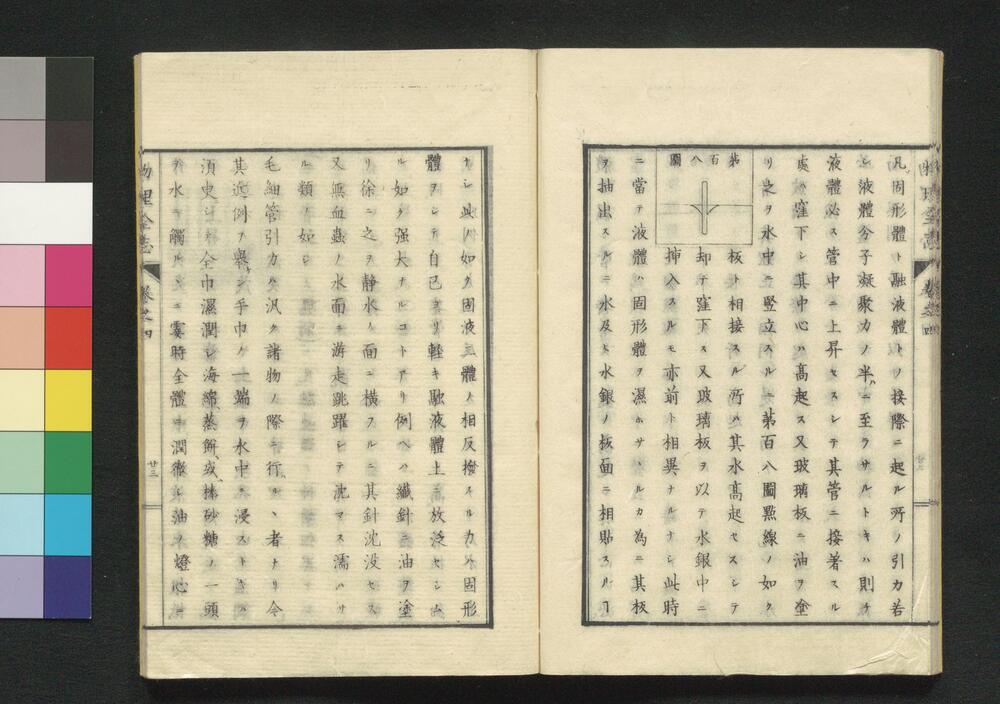 凡固形體ト融液體トノ接際ニ起ル所ノ引力若
シ液體分子凝聚力ノ半ニ至ラサルトキハ則チ
液體必ス管中ニ上昇セスシテ其管ニ接著スル
處ハ窪下シ其中心ハ高起ス又玻璃板ニ油ヲ塗
リ之ヲ水中ニ竪立スルニ第百八圖點線ノ如ク
第百八圖
板ト相接スル所ハ其水高起セスシテ
却テ窪下ス又玻璃板ヲ以テ水銀中ニ
挿入スルモ亦前ト相異ナルナシ此時
ニ當テ液體ハ固形體ヲ濕ホサヽルカ為ニ其板
ヲ抽出スルニ水及ヒ水銀ノ板面ニ相貼スルヿ
ナシ此ノ如ク固液二體ノ相反撥スル力ハ固形
體ヲシテ自己ヨリ輕キ融液體上ニ放泛セシム
ル如ク强大ナルコトアリ例ヘハ纎針ニ油ヲ塗
リ徐ニ之ヲ靜水ノ面ニ橫フルニ其針沈没セス
又無血蟲ノ水面ニ游走跳躍シテ沈マス濡ハサ
ルノ類ノ如シ
毛細管引力ハ汎ク諸物ノ際ニ行ルヽ者ナリ今
其近例ヲ擧ク手巾ノ一端ヲ水中ニ浸ストキハ
須臾ニシテ全巾濕潤シ海綿蒸餅或ハ棒砂糖ノ一頭
ヲ水ニ觸ルヽニ霎時全體中潤徹シ油ノ燈心ニ
物理全志
卷之四
廿三